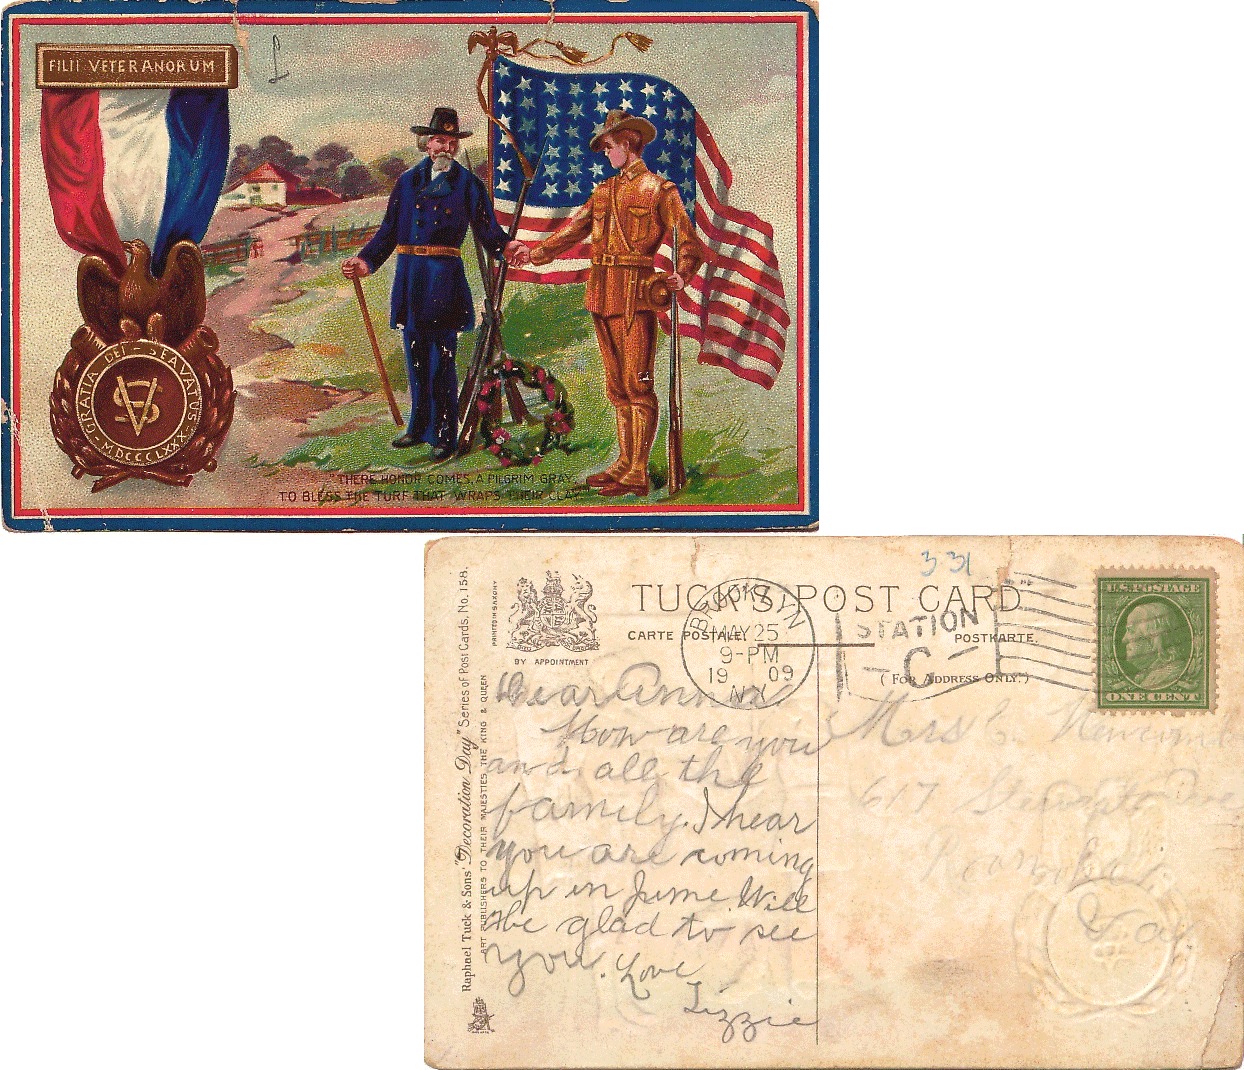 FILII VETERANORUM
GRATIA DEI - SEAVATUS
MDCCCCLXXX
"THERE HONOR COMES, A PILGRIM GRAY,
TO BLESS THE TURF THAT WRAPS THEIR CLAY"
331
TUCK'S POST CARD
CARTE POSTALE.
POSTKARTE.
(FOR ADDRESS ONLY.)
BY APPOINTMENT
PRINTED IN SAXONY
Raphael Tuck & Sons' "Decoration Day" Series of Post Cards. No. 158.
ART PUBLISHERS TO THEIR MAJESTIES THE KING & QUEEN
BROOKLYN
MAY 25
9-PM
1909
N.Y.
STATION
C
U.S. POSTAGE
ONE CENT
Dear Anna
How are you
and all the
family. I hear
you are coming
up in June. Will
be glad to see
you. Love
Lizzie
Mrs C.
617